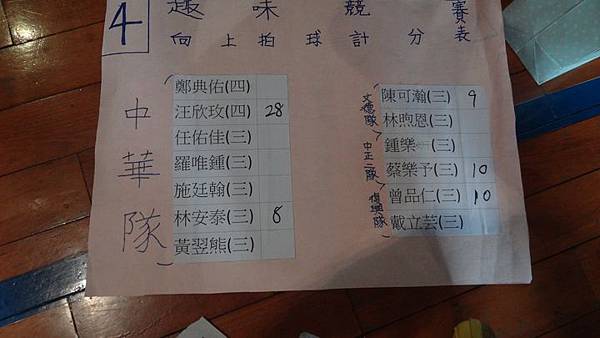 4
趣味競賽表
向上拍球計分
中華隊
鄭典佑(四)
汪欣玫(四) 28
任佑佳(三)
羅唯鍾(三)
施廷翰(三)
林安泰(三) 8
黃翌熊(三)
文德隊
陳可瀚(三) 9
林煦恩(三)
中正二隊
鍾樂一(三)
蔡樂予(三) 10
復興隊
曾品仁(三) 10
戴立芸(三)